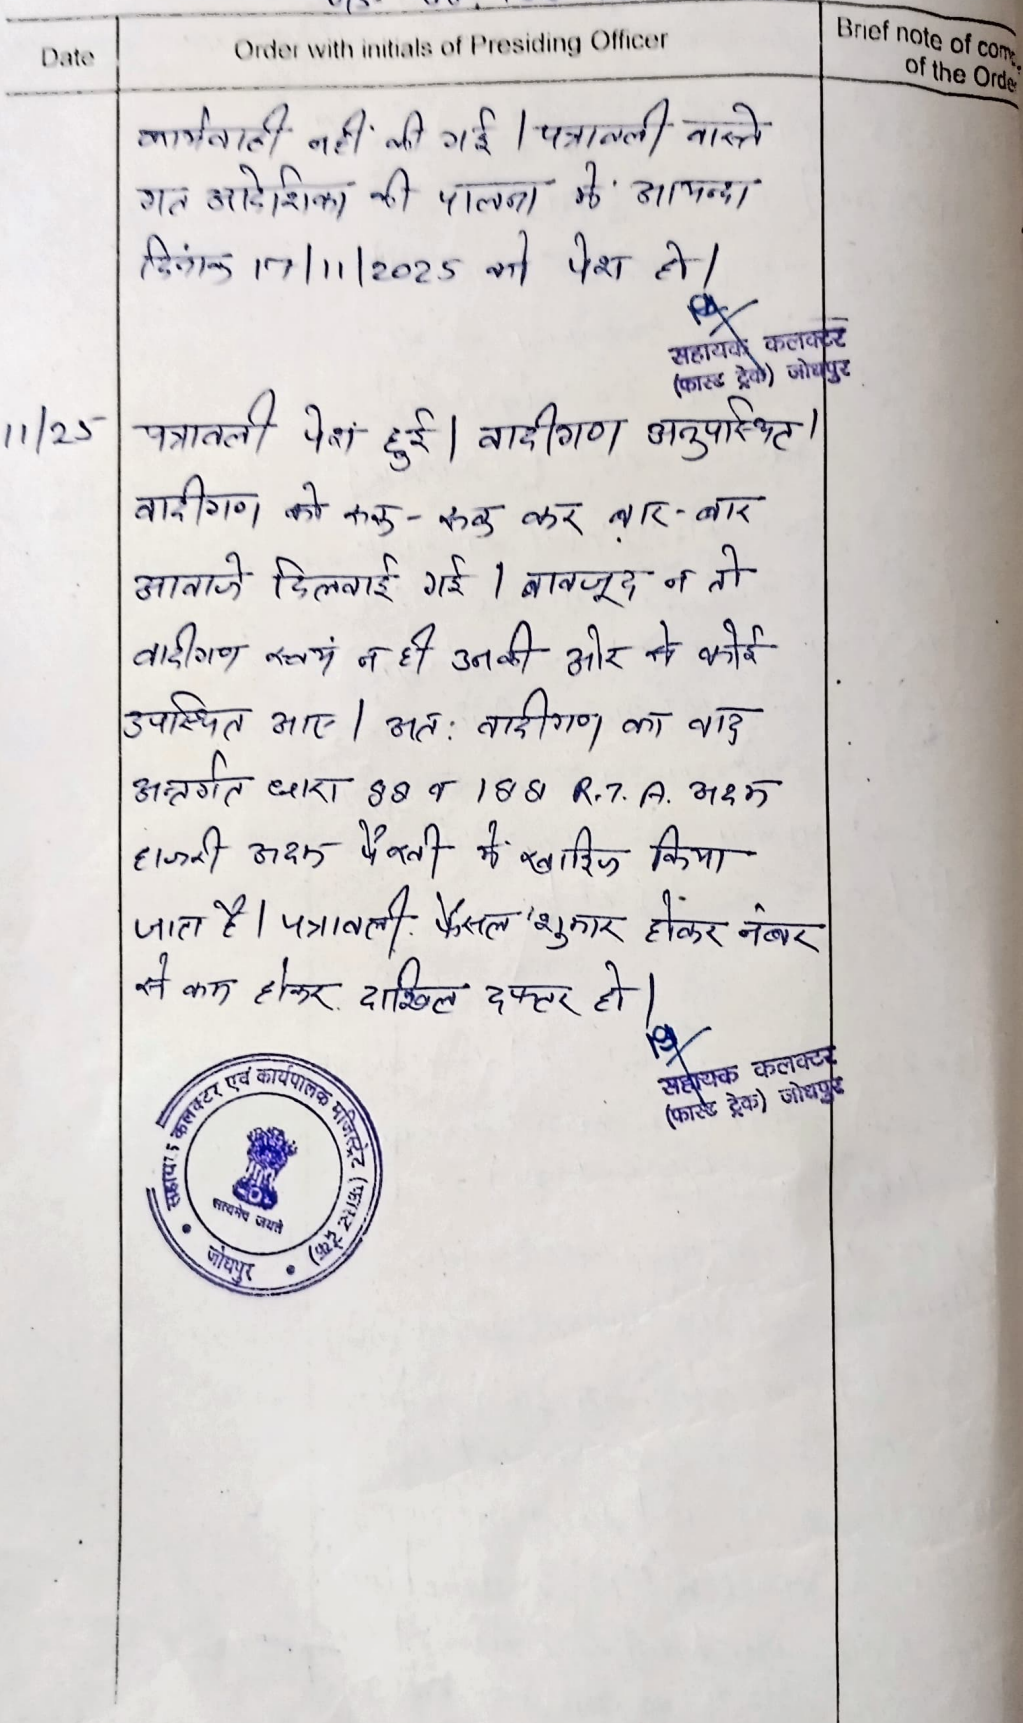 Date
Order with initials of Presiding Officer
Brief note of com
of the Orde
कार्यवाही नहीं की गई। पत्रावली वास्ते
गत आदेशिका की पालना में आयन्दा
दिनांक 17/11/2025 को पेश हो।
सहायक कलक्टर
(फास्ट ट्रेक) जोधपुर
11/25
पत्रावली पेश हुई। वादीगण अनुपस्थित।
वादीगण को रूक-रूक कर बार-बार
आवाजे दिलवाई गई। बावजूद न तो
वादीगण स्वयं न ही उनकी ओर से कोई
उपस्थित आए। अतः वादीगण का वाद
अन्तर्गत धारा 88 व 188 R.T.A. अदम
हाजरी अदम पैरवी में खारिज किया
जाता है। पत्रावली फैसल शुमार होकर नंबर
से कम होकर दाखिल दफ्तर हो।
सहायक कलक्टर
(फास्ट ट्रेक) जोधपुर
सहायक कलक्टर एवं कार्यपालक मजिस्ट्रेट (फास्ट ट्रेक)
सत्यमेव जयते
जोधपुर